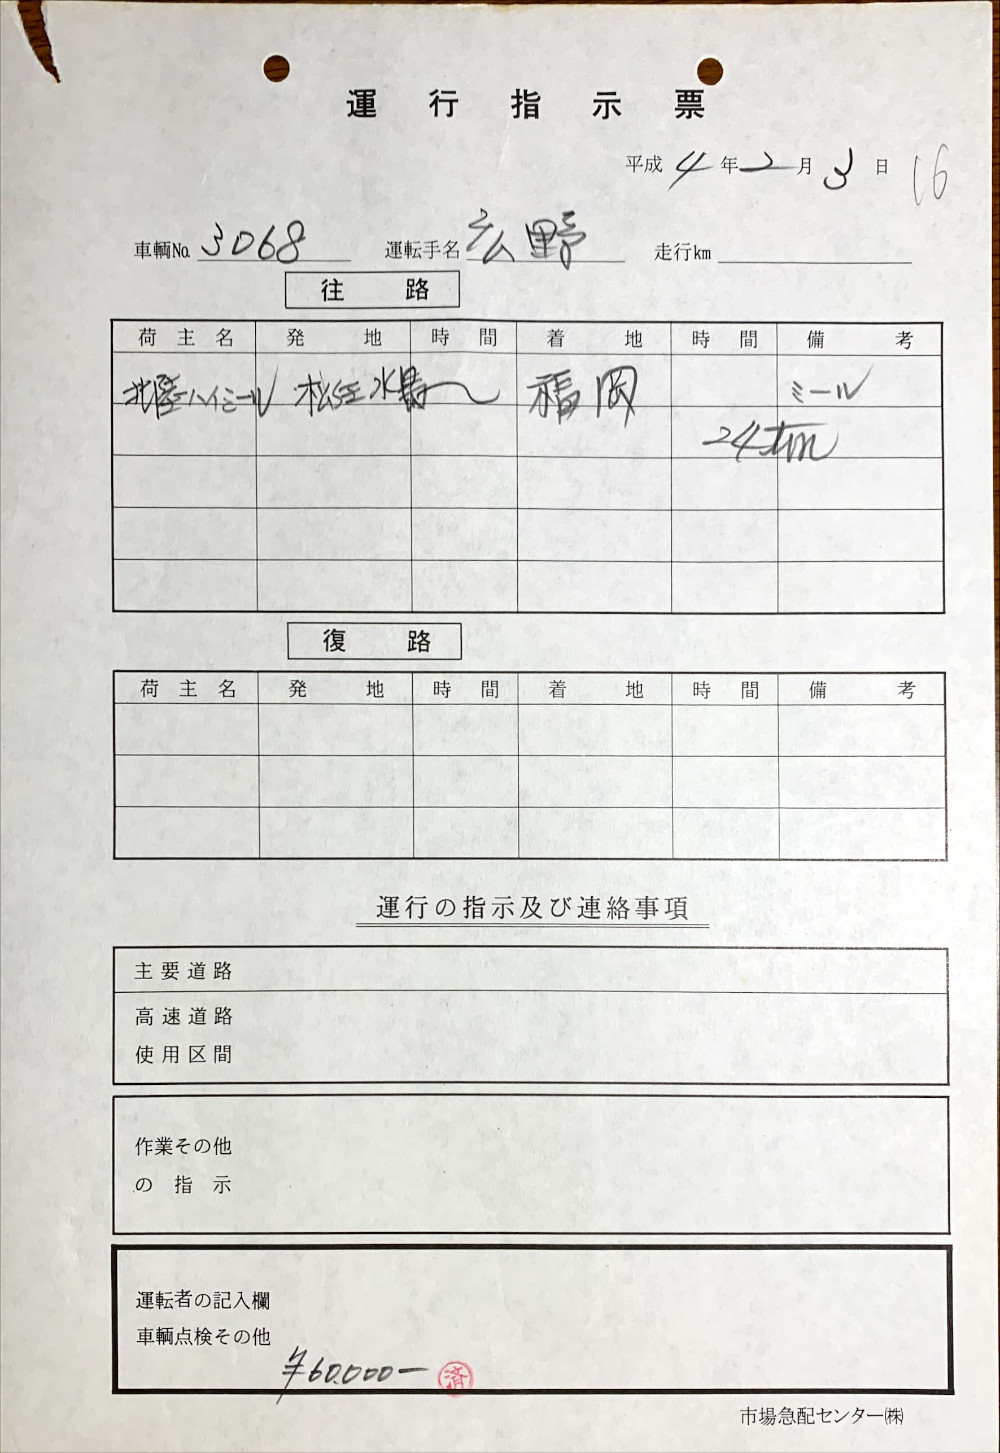 運行指示票
平成 4 年 2 月 3 日 16
車輌No. 3068 運転手名 広野 走行km
往路
荷主名 発地 時間 着地 時間 備考
ハイミール 水島〜 福岡 ミール
24
復路
荷主名 発地 時間 着地 時間 備考
運行の指示及び連絡事項
主要道路
高速道路
使用区間
作業その他
の指示
運転者の記入欄
車輌点検その他
¥60,000− 済
市場急配センター㈱